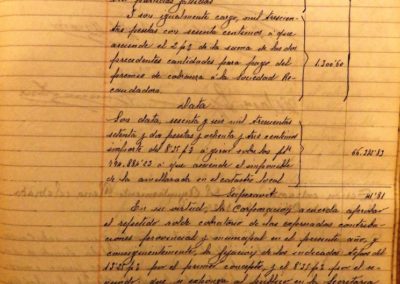 dos planillas fijadas
Y son igualmente cargo, mil trescien-
tas pesetas con sesenta centimos á que
asciende el 2 p% de la suma de las dos
precedentes cantidades para pago del
premio de cobranza á la Sociedad Re-
caudadora. 1.300'60
Data
Son data, sesenta y seis mil trescientas
setenta y dos pesetas y ochenta y tres centimos
importe del 8'35 p% á girar sobre las pts
á que asciende el imponible
de la amillarada en el catastro local 66.372'83
En su virtud, la Corporacion acuerda aprobar
el repetido sobre cobratorio de las expresadas contribu-
ciones provincial y municipal en el presente año, y
consiguientemente, la fijacion de los indicados tipos del
por el primer concepto, y el 8'35 p% por el se-
gundo, que se exponga al publico en la Secretaria